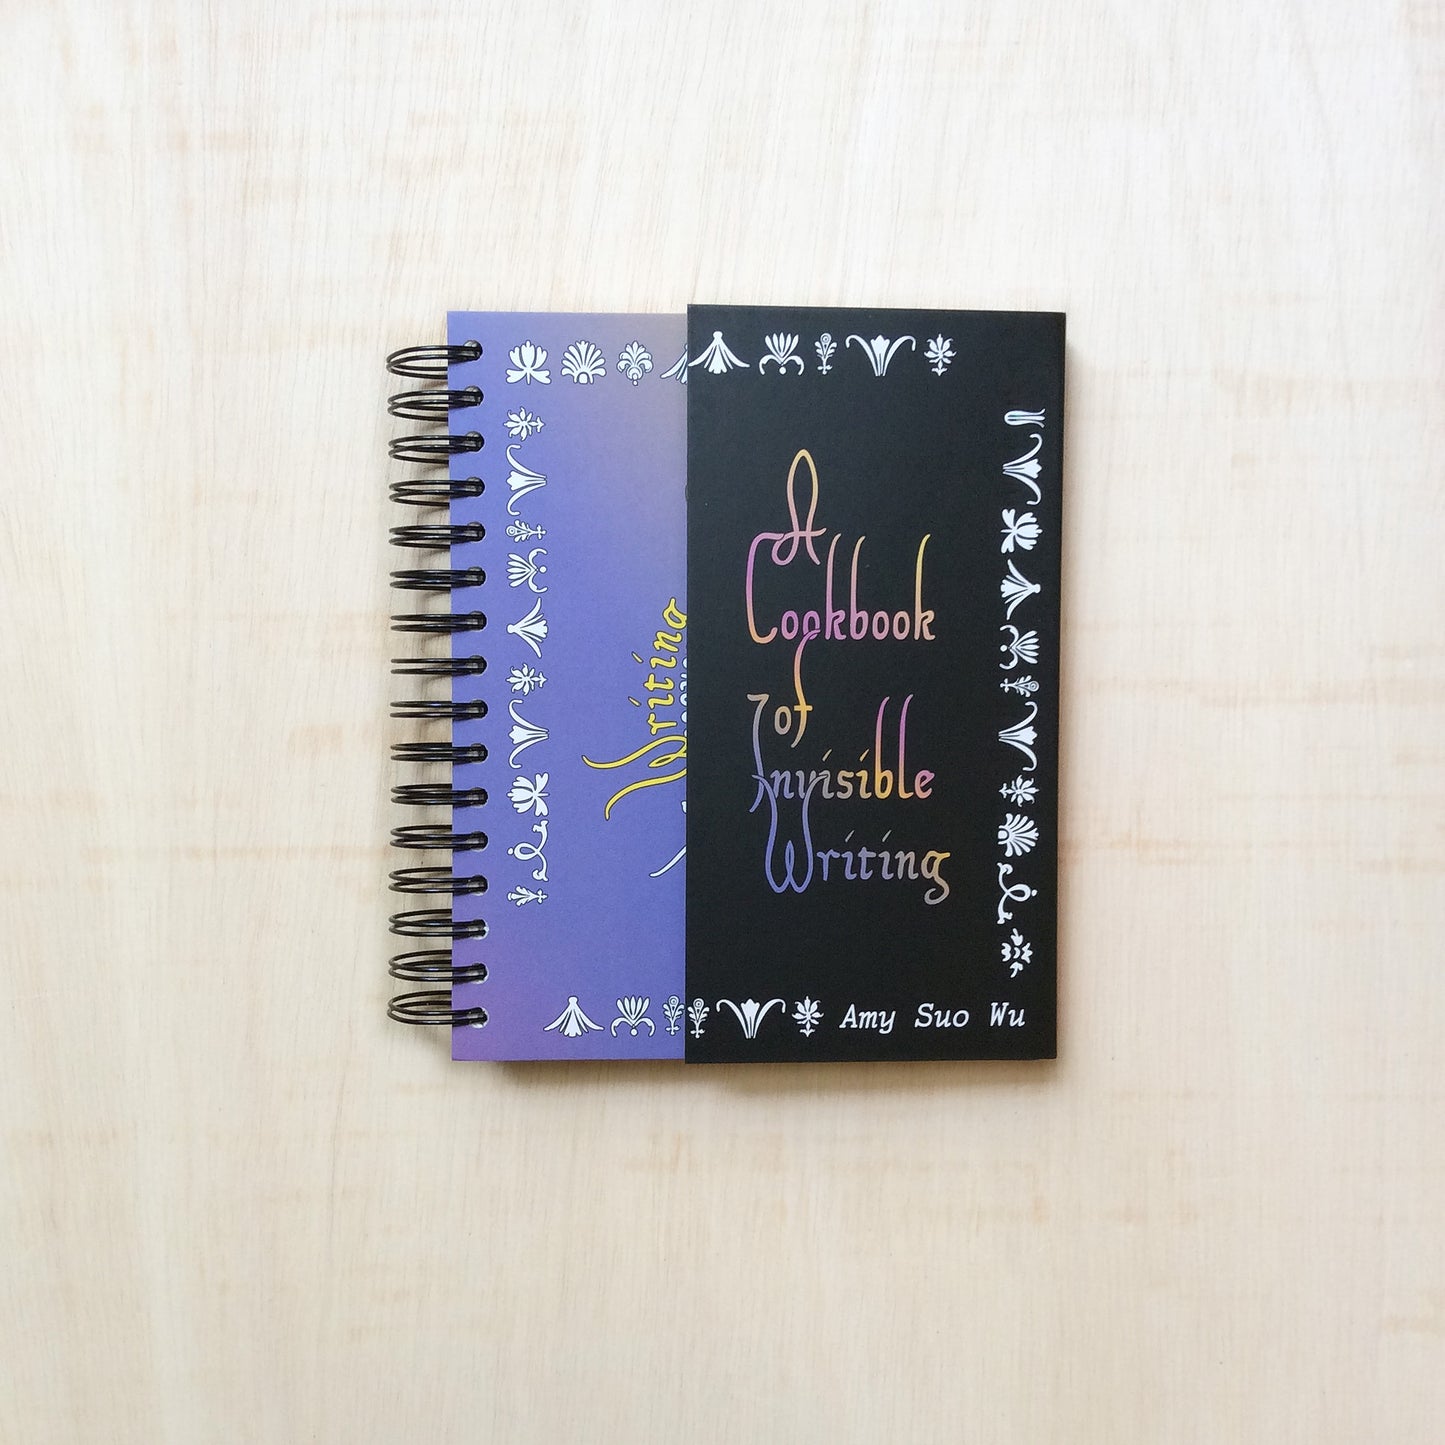 Writing
A
Cookbook
of
Invisible
Writing
Amy Suo Wu